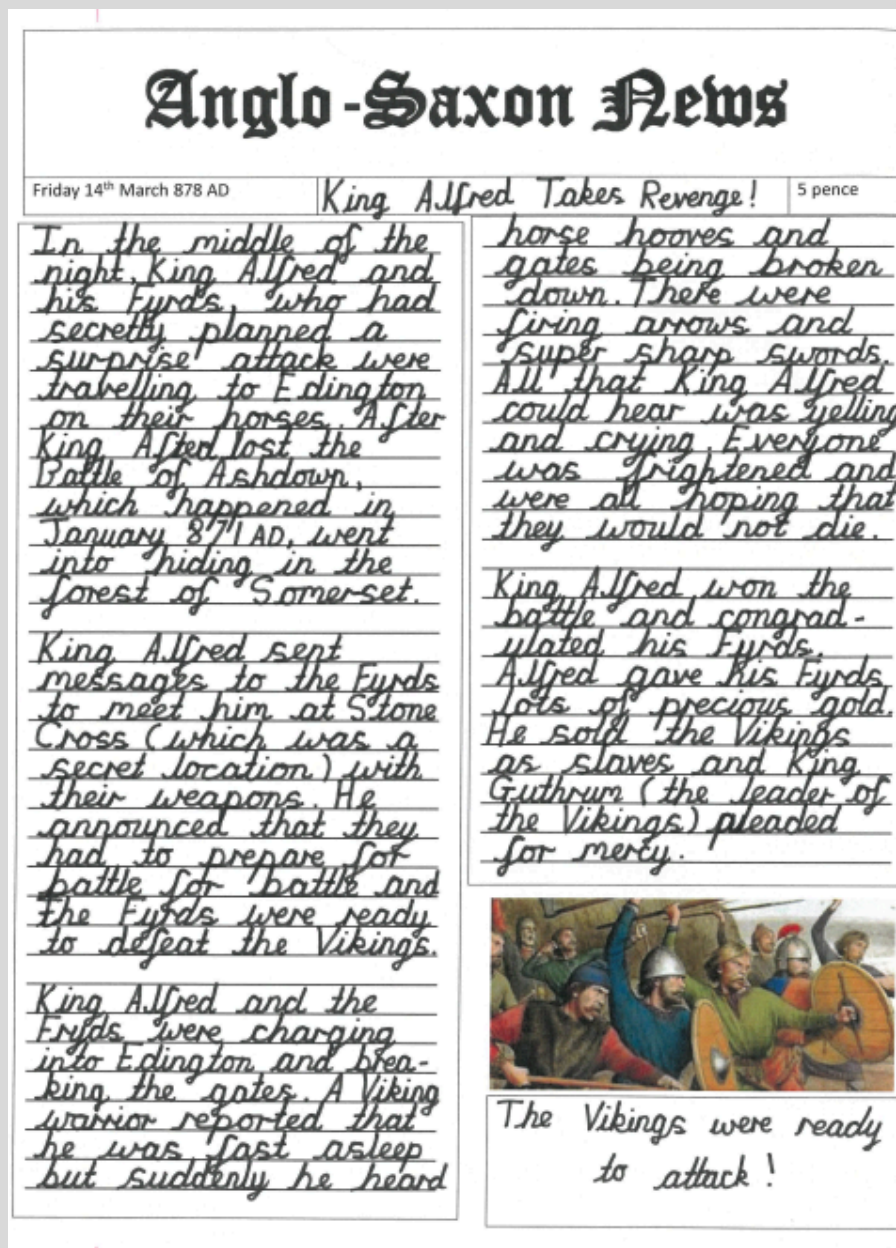 Anglo-Saxon News
Friday 14th March 878 AD
King Alfred Takes Revenge!
5 pence
In the middle of the
night, King Alfred and
his Fyrds, who had
secretly planned a
surprise attack were
travelling to Edington
on their horses. After
King Alfred lost the
Battle of Ashdown,
which happened in
January 871 AD, went
into hiding in the
forest of Somerset.
King Alfred sent
messages to the Fyrds
to meet him at Stone
Cross (which was a
secret location) with
their weapons. He
announced that they
had to prepare for
battle for battle and
the Fyrds were ready
to defeat the Vikings.
King Alfred and the
Fryds were charging
into Edington and brea-
king the gates. A Viking
warrior reported that
he was fast asleep
but suddenly he heard
horse hooves and
gates being broken
down. There were
firing arrows and
super sharp swords.
All that King Alfred
could hear was yelling
and crying. Everyone
was frightened and
were all hoping that
they would not die.
King Alfred won the
battle and congrad-
ulated his Fyrds.
Alfred gave his Fyrds
lots of precious gold.
He sold the Vikings
as slaves and King
Guthrum (the leader of
the Vikings) pleaded
for mercy.
The Vikings were ready
to attack!